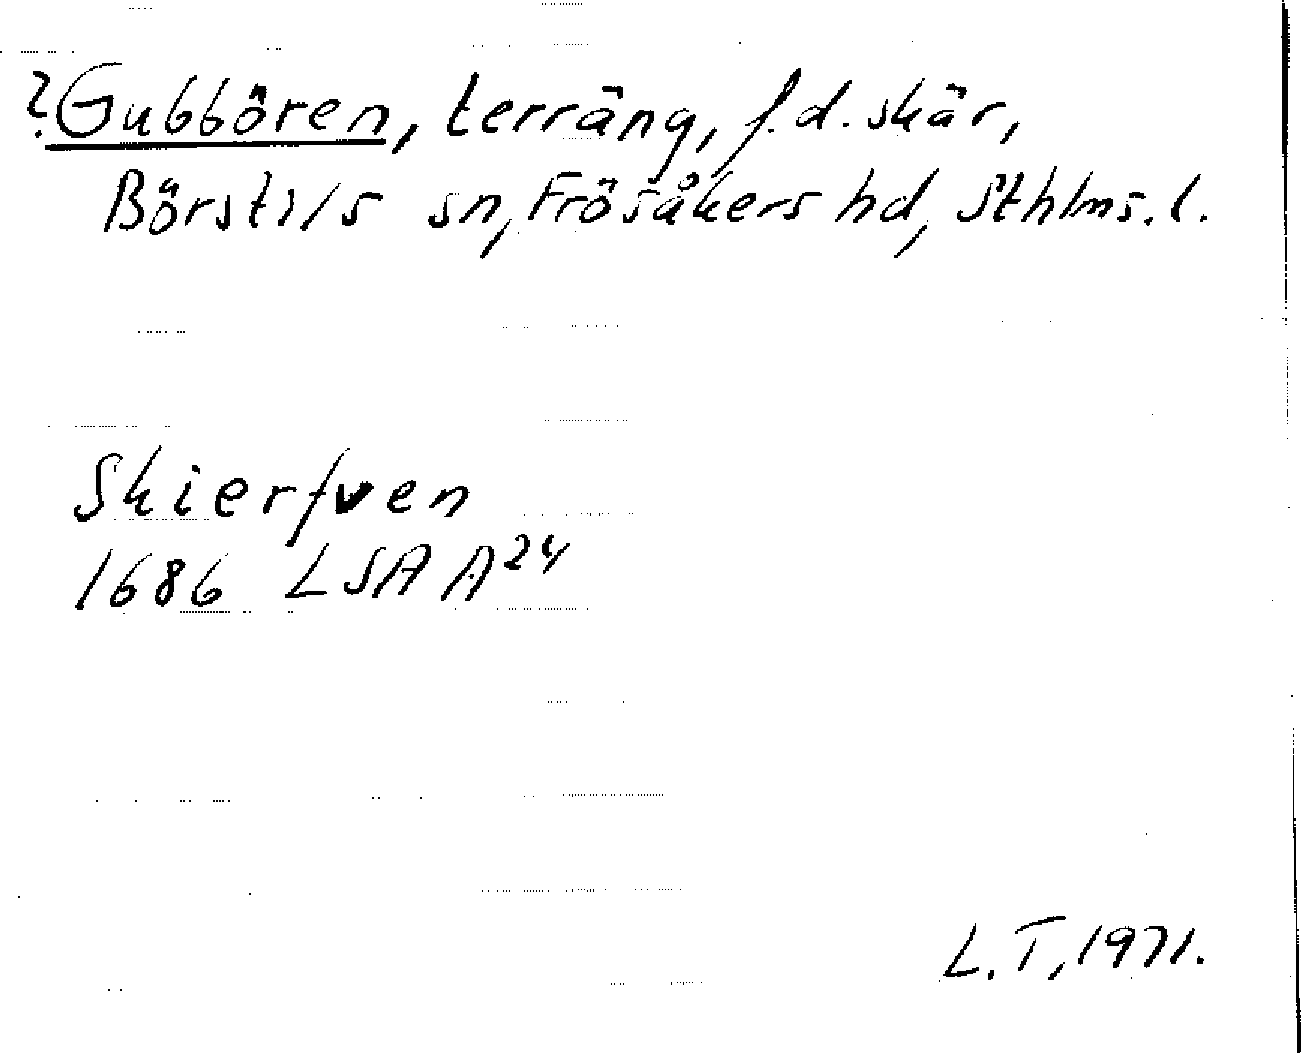 ?Gubbören, terräng, f.d. skär,
Börstils sn, Frösåkers hd, Sthlms. l.
Skierfven
1686 LSA A²⁴
L.T, 1971.